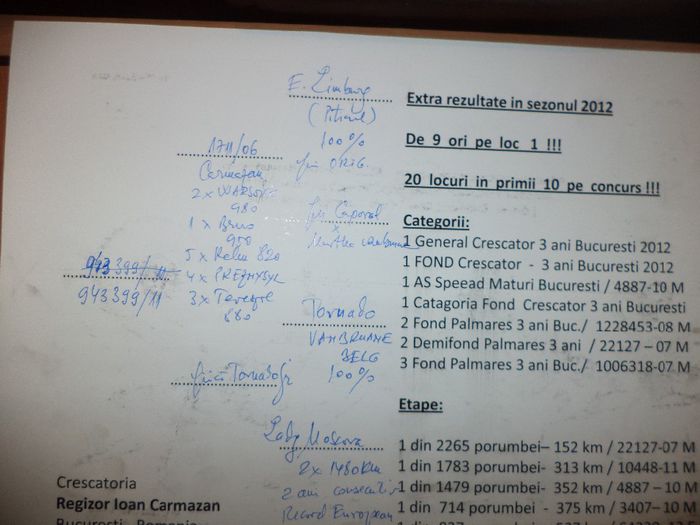 E. Limburg
(Piticul)
100%
fiu ORIG.
1711/06
Carmazan
2 x WARSOVIA
980
1 x Brno
950
5 x Kelu 820
4 x PREJMYSYL
3 x Ternopil
880
943399/11
943399/11
fiu Caporal
x
Tornado
VANBRUANE
BELG
100%
fiica Tornado
Lady Moskova
2 x 1480 km
2 ani consecutiv
Record European
Extra rezultate in sezonul 2012
De 9 ori pe loc 1 !!!
20 locuri in primii 10 pe concurs !!!
Categorii:
1 General Crescator 3 ani Bucuresti 2012
1 FOND Crescator - 3 ani Bucuresti 2012
1 AS Speead Maturi Bucuresti / 4887-10 M
1 Catagoria Fond Crescator 3 ani Bucuresti
2 Fond Palmares 3 ani Buc./ 1228453-08 M
2 Demifond Palmares 3 ani / 22127 – 07 M
3 Fond Palmares 3 ani Buc./ 1006318-07 M
Etape:
1 din 2265 porumbei– 152 km / 22127-07 M
1 din 1783 porumbei- 313 km / 10448-11 M
1 din 1479 porumbei- 352 km / 4887 – 10 M
1 din 714 porumbei - 375 km / 3407– 10 M
Crescatoria
Regizor Ioan Carmazan
Bucuresti - Romania